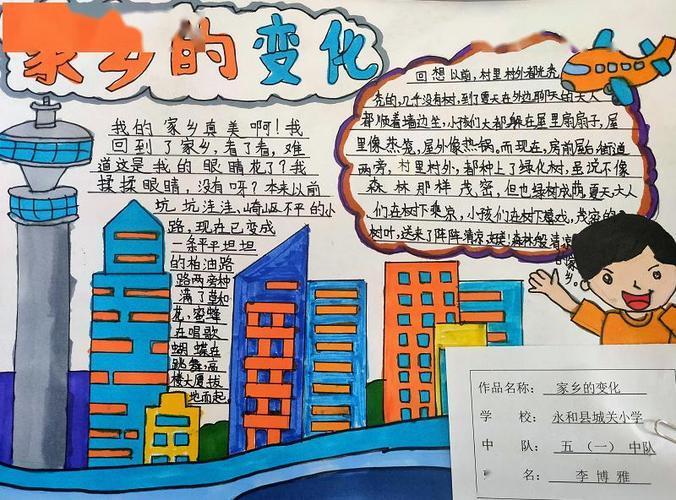 家乡的变化
我的家乡真美啊!我
回到了家乡,看了看,难
道这是我的眼睛花了?我
揉揉眼睛,没有呀?本来以前
坑坑洼洼、崎岖不平的小
路,现在已变成
一条平平坦坦
的柏油路
路两旁种
满了草和
花,蜜蜂
在唱歌
蝴蝶在
跳舞,高
楼大厦拔
地而起。
回想以前,村里村外都光秃
秃的,几乎没有树,到了夏天在外边聊天的大人
都顺着墙边坐,小孩们大都躲在屋里扇扇子,屋
里像蒸笼,屋外像热锅。而现在,房前屋后街道
两旁,村里村外,都种上了绿化树,虽说不像
森林那样茂密,但也绿树成荫,夏天大人
们在树下乘凉,小孩们在树下嬉戏,茂密的
树叶,送来了阵阵清凉,这森林般清凉
的家乡。
作品名称: 家乡的变化
学 校: 永和县城关小学
中 队: 五 (一) 中队
名: 李博雅